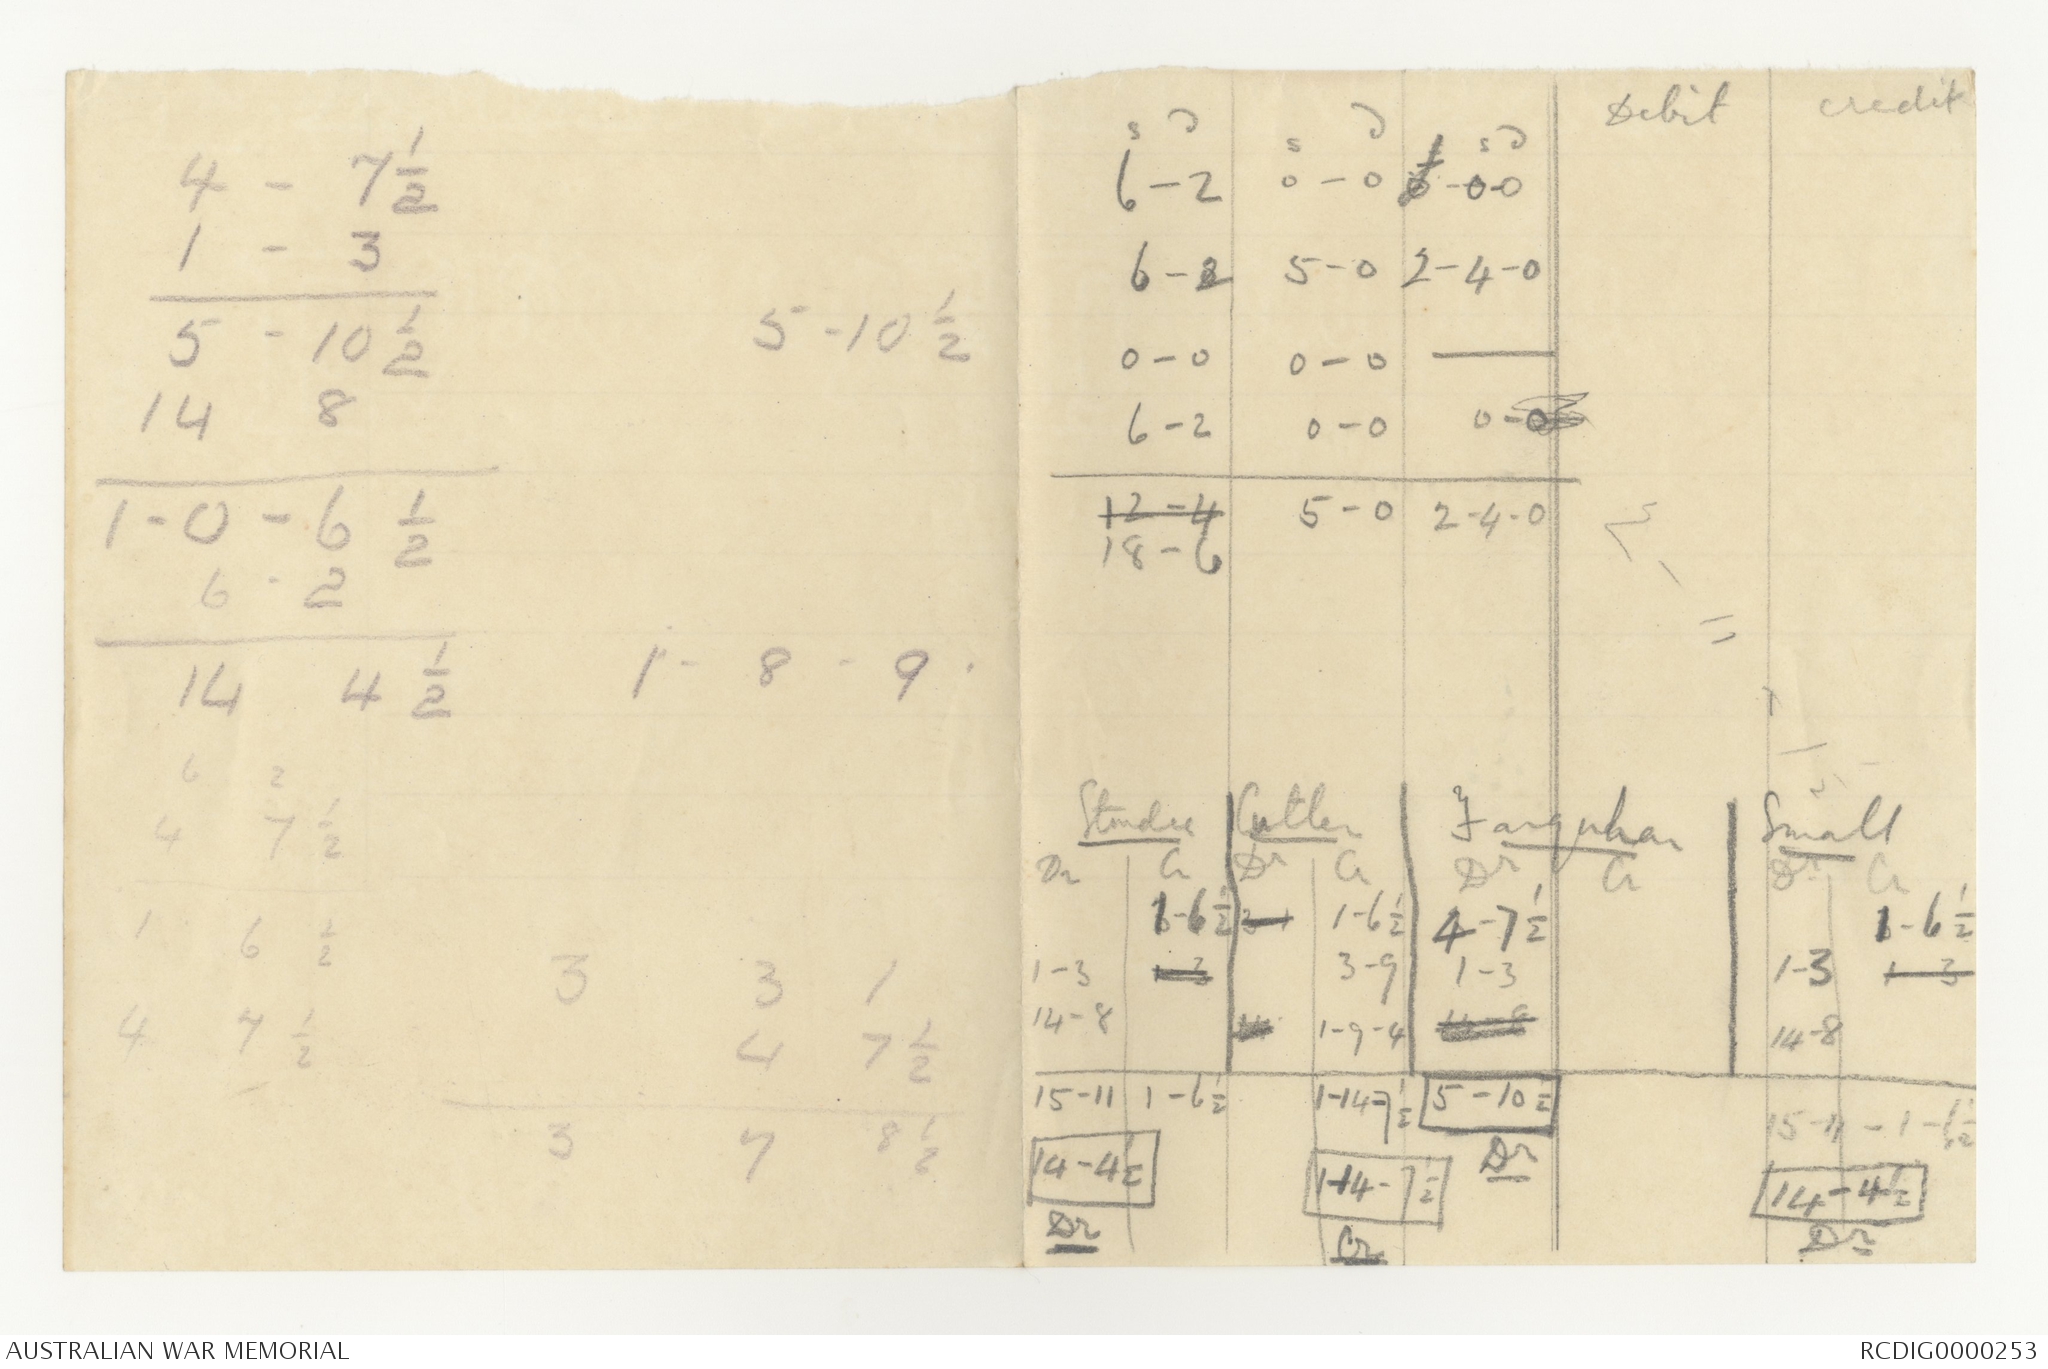 4 - 7 1/2
1 - 3
5 - 10 1/2
14 8
1 - 0 - 6 1/2
6 - 2
14 4 1/2
6 2
4 7 1/2
1 6 1/2
4 7 1/2
5 - 10 1/2
1 - 8 - 9 .
3 3 1
4 7 1/2
3 7 8 1/2
Debit credit
s D s D s D
6 - 2 0 - 0 0 - 0 0
6 - 2 5 - 0 2 - 4 - 0
0 - 0 0 - 0 —
6 - 2 0 - 0 0 - 0
12 - 4 5 - 0 2 - 4 - 0
18 - 6
Cutler Farquhar Small
Dr Cr Dr Cr Dr Cr Dr Cr
1 - 6 1/2 1 - 6 1/2 4 - 7 1/2 1 - 6 1/2
1 - 3 1 - 3 3 - 9 1 - 3 1 - 3 1 - 3
14 - 8 1 - 9 - 4 14 - 8 14 - 8
15 - 11 1 - 6 1/2 1 - 14 - 7 1/2 5 - 10 1/2 15 - 11 - 1 - 6 1/2
14 - 4 1/2 1 - 14 - 7 1/2 Dr 14 - 4 1/2
Dr Cr Dr
AUSTRALIAN WAR MEMORIAL RCDIG0000253